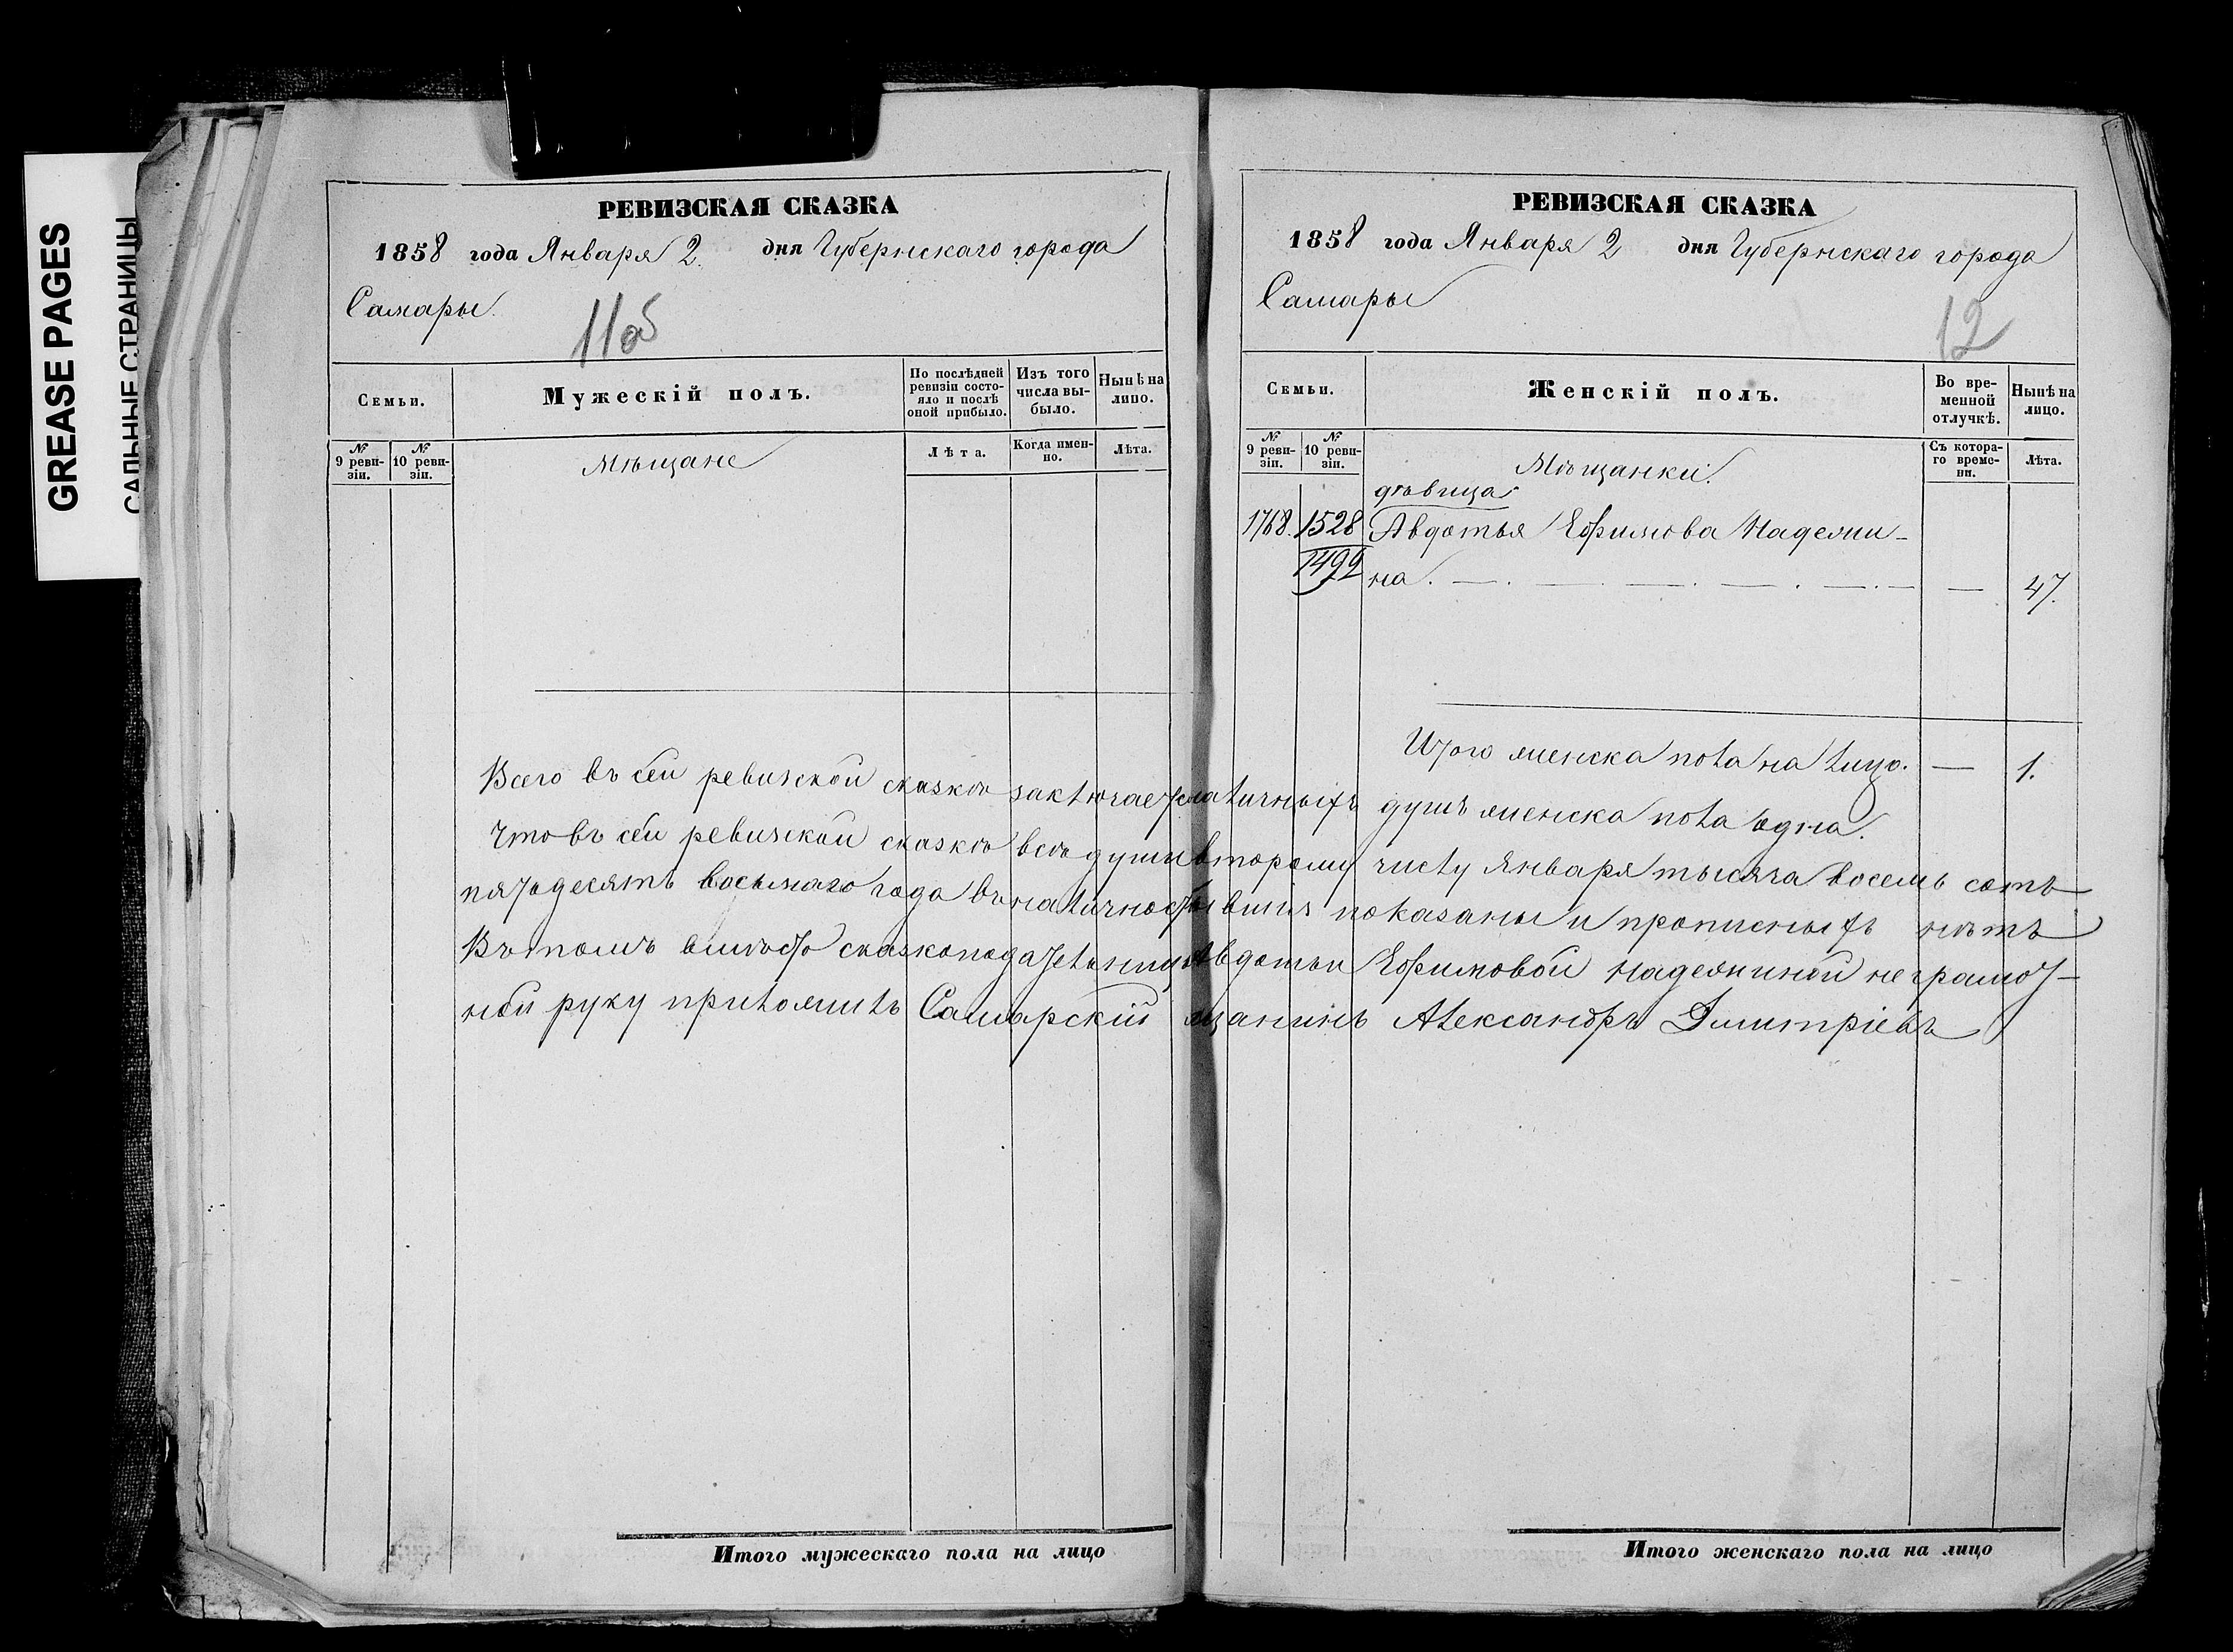 GREASE PAGES
САЛЬНЫЕ СТРАНИЦЫ
РЕВИЗСКАЯ СКАЗКА
1858 года Января 2. дня Губернскаго города
Самары.
11об
Семьи.
Мужескій полъ.
По послѣдней ревизіи состояло и послѣ оной прибыло.
Изъ того числа выбыло.
Нынѣ на лицо.
№ 9 ревизіи.
№ 10 ревизіи.
Мѣщане
Лѣта.
Когда именно.
Лѣта.
Итого мужескаго пола на лицо
РЕВИЗСКАЯ СКАЗКА
1858 года Января 2 дня Губернскаго города
Самары
12
Семьи.
Женскій полъ.
Во временной отлучкѣ.
Нынѣ на лицо.
№ 9 ревизіи.
№ 10 ревизіи.
Мѣщанки.
Съ котораго времени.
Лѣта.
дѣвица
1768. 1528 Авдотья Ефимова
1492 на. — 47.
Итого женска пола на лицо. — 1.
Всего въ сей ревизской сказкѣ заключается наличныхъ душъ женска пола одна.
Что въ сей ревизской сказкѣ всѣ души второму числу Января тысяча восемь сотъ
пятьдесятъ восьмаго года въ наличности показаны и прописныхъ нѣтъ
Въ томъ вмѣсто сказкоподательницы Авдотьи Ефимовой неграмот-
ной руку приложилъ Самарскій мѣщанинъ Александръ Димитріевъ
Итого женскаго пола на лицо